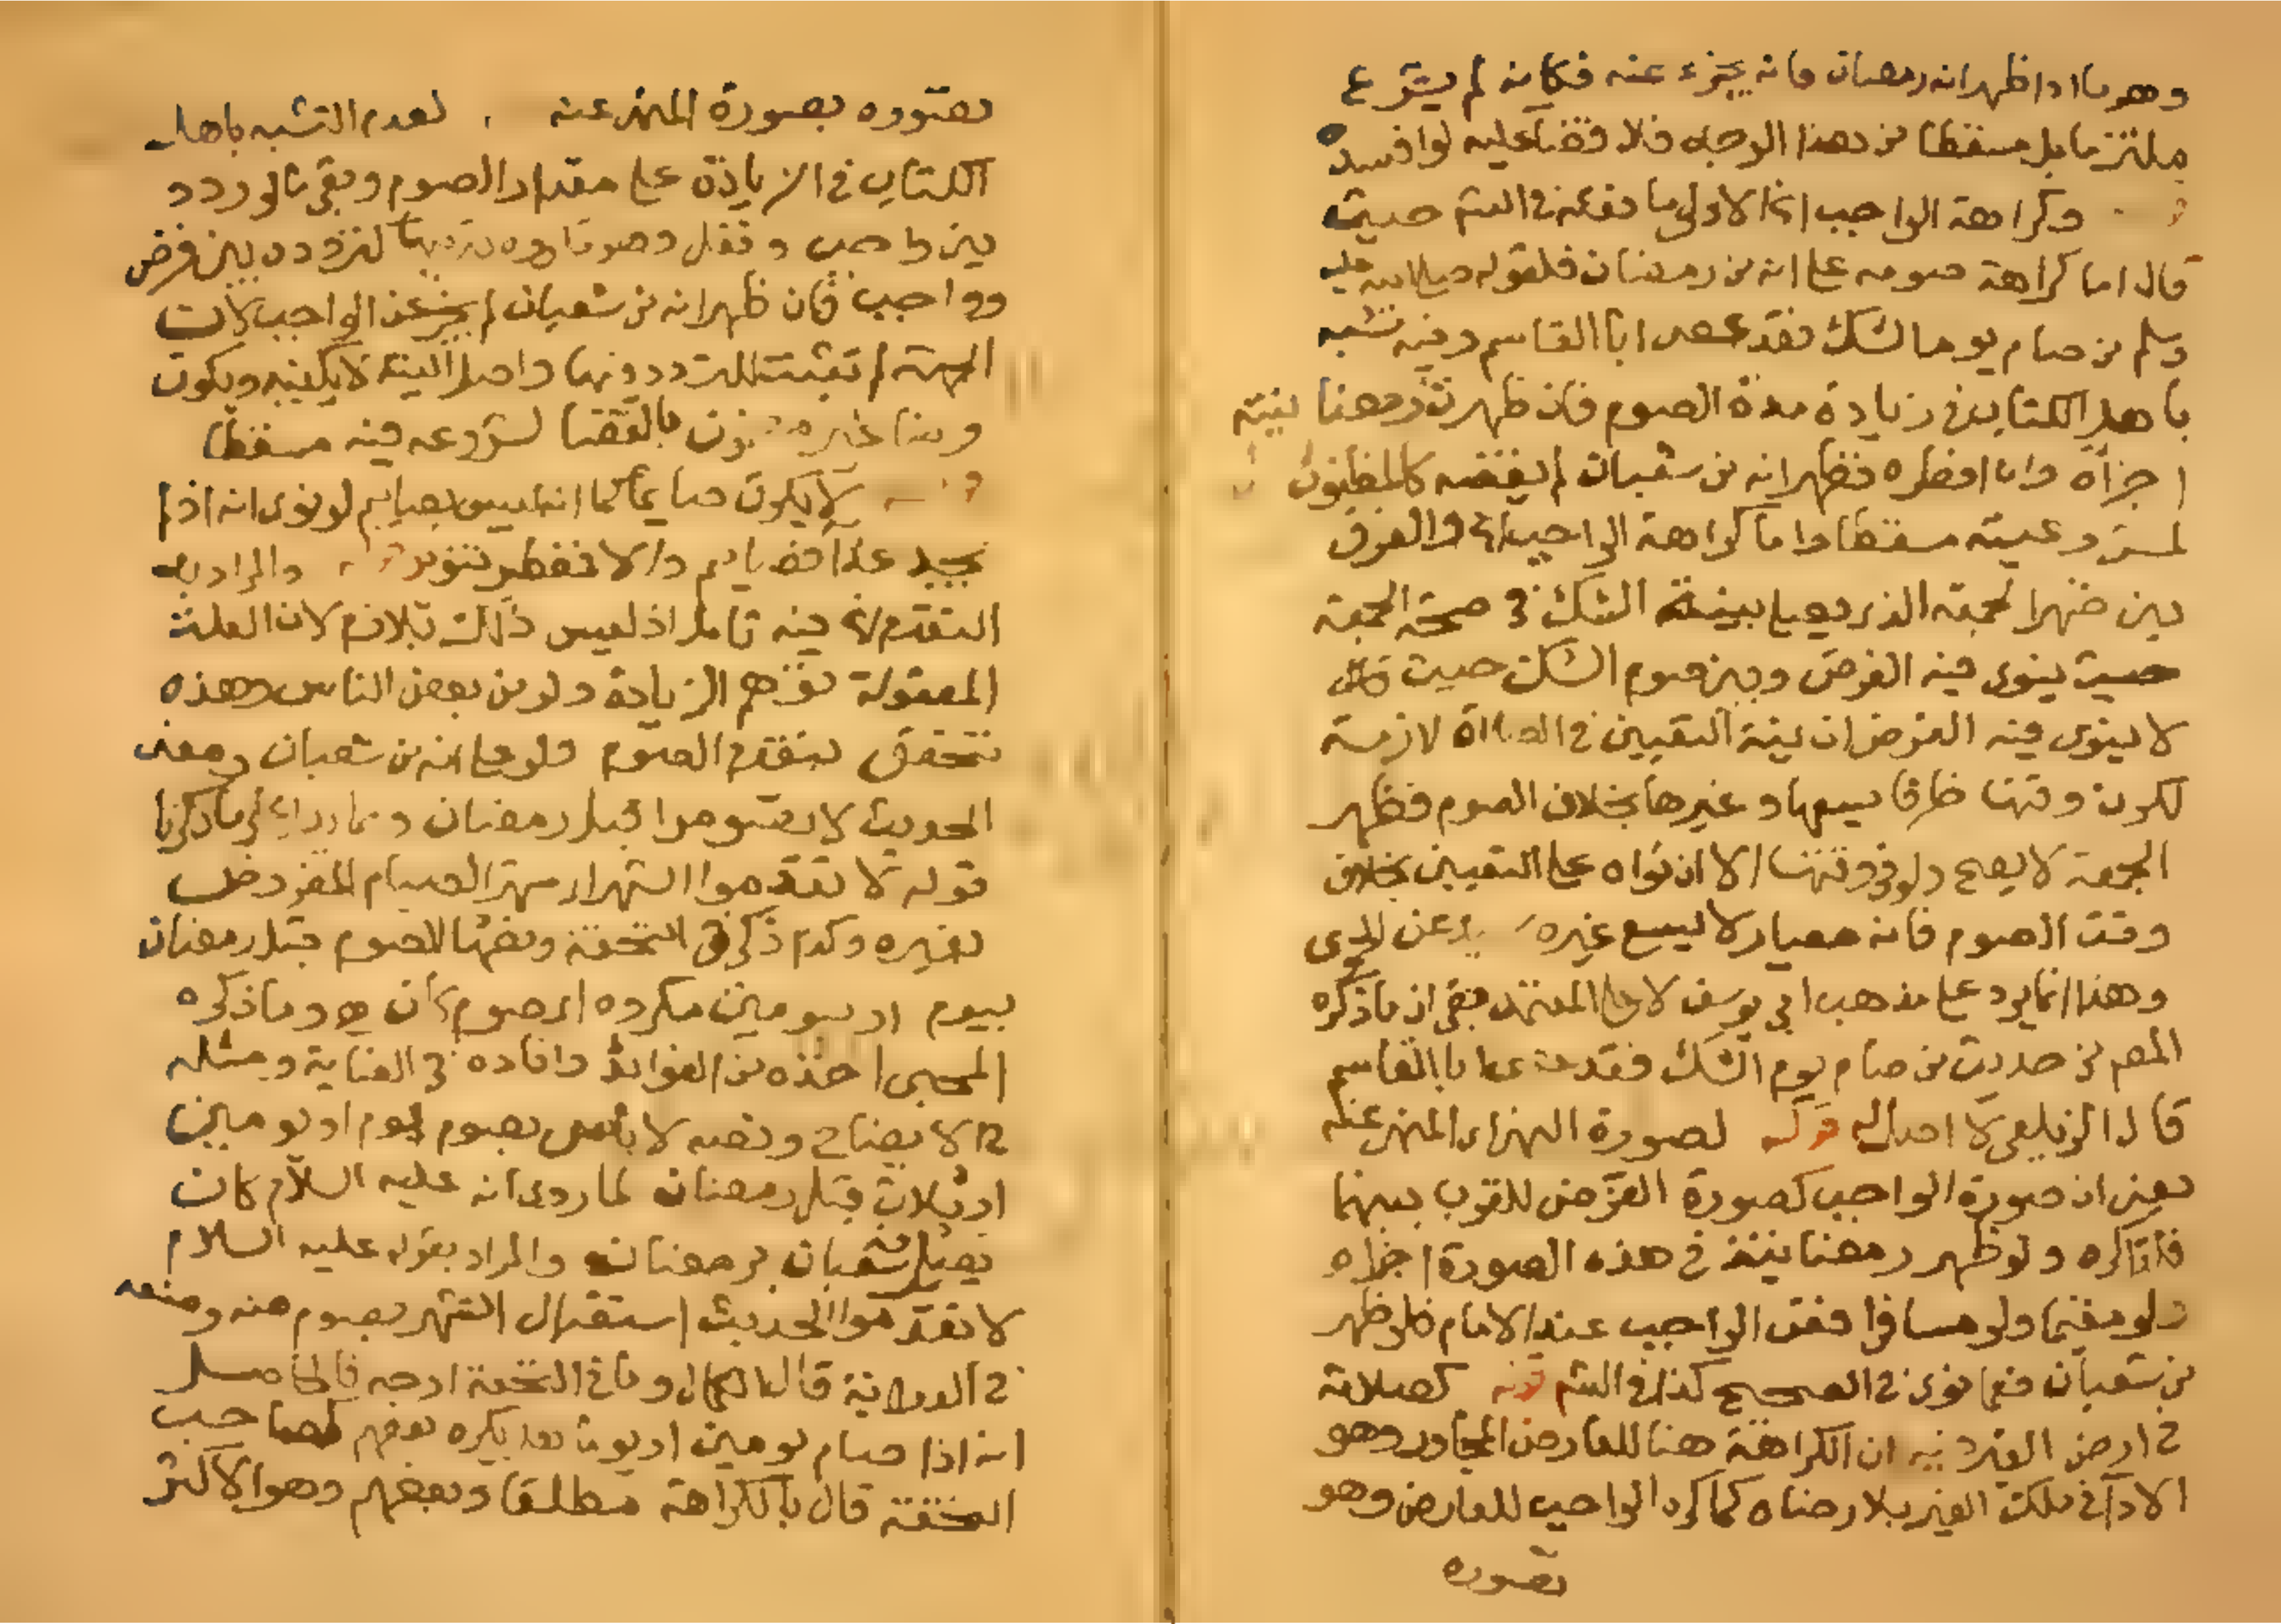 وهو ما اذا ظهر انه رمضان فانه يجزء عنه فكانه لم يشرع
ملتزما بل مسقطا من هذا الوجه فلا قضا عليه لو افسده
وكراهة الواجب انما الاولى ما دفعه في الشم حيث
قال اما كراهة صومه على انه من رمضان فلقوله صلى الله عليه
وسلم من صام يوم الشك فقد عصى ابا القاسم وفيه تشبه
باهل الكتاب في زيادة مدة الصوم فان ظهرت رمضا نيته
اجزأه وان افطره فظهر انه من شعبان لم يقضه كالمظنون
لشروعيته مسقطا واما كراهة الواجب والفرق
بين ظهر الجمعة الذي يصلى بنية الشك في صحة الجمعة
حيث ينوى فيه الفرض وبين صوم الشك حيث
لا ينوى فيه الفرض ان نية التعيين في الصلاة لازمة
لكون وقتها ظرفا يسعها وغيرها بخلاف الصوم فظهر
الجمعة لا يصح ولو في وقتها الا ان نواه على التعيين بخلاف
وقت الصوم فانه معيار لا يسع غيره عن الحموى
وهذا انما يرد على مذهب ابي يوسف لا على المعتمد فبقى ان ما ذكره
المص من حديث من صام يوم الشك فقد عصى ابا القاسم
قال الزيلعى لا اصل له قوله لصورة النهى اى المنهى عنه
يعنى ان صورة الواجب كصورة الفرض للقرب بينهما
فلذا كره ولو ظهر رمضانيته في هذه الصورة اجزاه
ولو مقيما ولو مسافرا فعن الواجب عند الامام فلو ظهر
من شعبان فعما نوى في الصحيح كذا في الشم قوله كصلاته
في ارض الغير ان الكراهة هنا للعارض المجاور وهو
الادآ في ملك الغير بلا رضاه كما كره الواجب للعارض وهو
تصوره
تصوره بصورة المنهى عنه لعدم التشبه باهل
الكتاب في الزيادة على مقدار الصوم وبقى ما لو ردد
بين واجب ونفل وهو لتردده بين فرض
وواجب فان ظهر انه من شعبان لم يجز عن الواجب لان
الجهة لم تثبت للتردد فيها واصل النية لا يكفيه ويكون
وهنا غير مضمون بالقضا لشروعه فيه مسقطا
لا يكون صايما كما انه ليس بصايم لو نوى انه اذا لم
يجد غدا فصايم والا فمفطر والمراد به
التقدم لا فيه تامل اذ ليس ذلك تلازم لان العلة
المعقولة توهم الزيادة ولو من بعض الناس وهذه
تتحقق بتقدم الصوم ولو على انه من شعبان ومعنى
الحديث لا تصوموا قبل رمضان ما ذكرنا
قوله لا تقدموا الشهر اى شهر الصيام المفروض
بغيره وكدم ذكر في التحفة ونصها الصوم قبل رمضان
بيوم او يومين مكروه اى صوم كان وما ذكره
المحبى اخذه من الفوائد وافاده في العناية ومثله
في الايضاح ونصه لا بأس بصوم يوم او يومين
او ثلاث قبل رمضان لما روى انه عليه السلام كان
يصل شعبان برمضان والمراد بقوله عليه السلام
لا تقدموا الحديث استقبال الشهر بصوم منه ومنعه
في قال الكمال وما في التحفة اوجه فالحاصل
انه اذا صام يومين او يوما بعد يكره بعضهم كصاحب
التحفة قال بالكراهة مطلقا وبعضهم وهو الاكثر